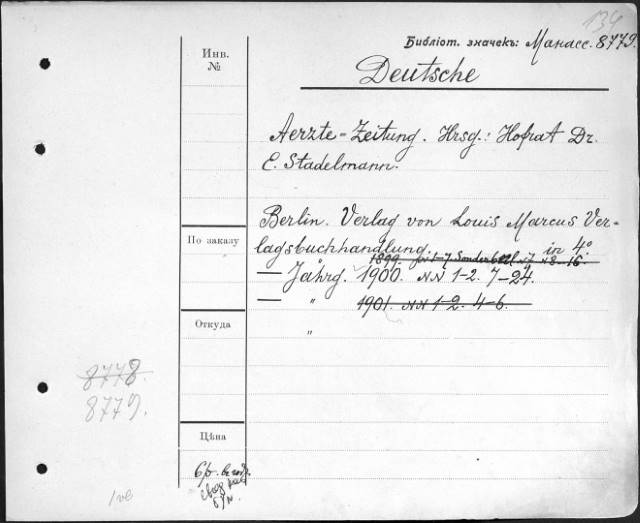 134
Библіот. значекъ: Манасс. 8779.
Инв.
№
Deutsche
Aerzte-Zeitung. Hrsg.: Hofrat Dr.
E. Stadelmann.
Berlin. Verlag von Louis Marcus Ver-
lagsbuchhandlung. in 4°
По заказу
1899. 8-16
— Jahrg. 1900. NN 1-2. 7-24.
— " 1901. NN 1-2. 4-6.
Откуда
"
8778.
8779.
Цѣна
6р.